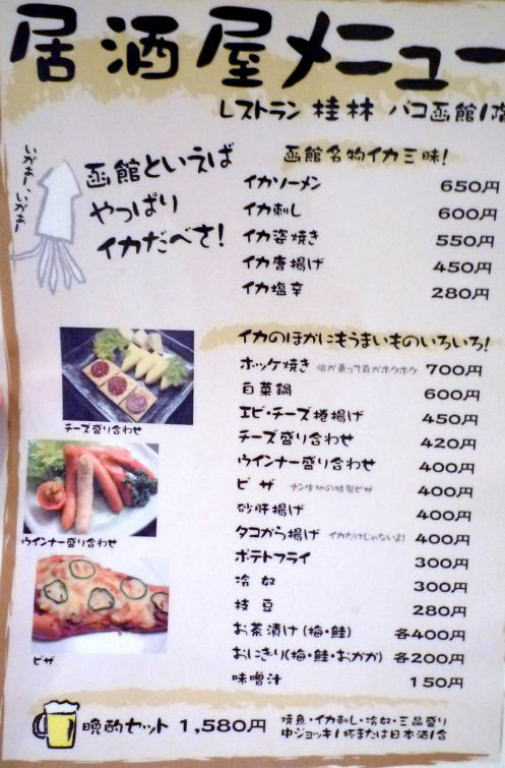 居酒屋メニュー
レストラン 桂林 パコ函館1階
いかぁー、いかぁー
函館といえば
やっぱり
イカだべさ!
函館名物イカ三昧!
イカソーメン 650円
イカ刺し 600円
イカ姿焼き 550円
イカ唐揚げ 450円
イカ塩辛 280円
イカのほかにもうまいものいろいろ!
ホッケ焼き 脂が乗って身がホクホク 700円
白菜鍋 600円
エビ・チーズ捲揚げ 450円
チーズ盛り合わせ 420円
ウインナー盛り合わせ 400円
ピザ ナン生地の特製ピザ 400円
砂肝揚げ 400円
タコから揚げ イカだけじゃないよ! 400円
ポテトフライ 300円
冷奴 300円
枝豆 280円
お茶漬け(梅・鮭) 各400円
おにぎり(梅・鮭・おかか) 各200円
味噌汁 150円
チーズ盛り合わせ
ウインナー盛り合わせ
ピザ
晩酌セット 1,580円
焼魚・イカ刺し・冷奴・三品盛り
中ジョッキ1杯または日本酒1合